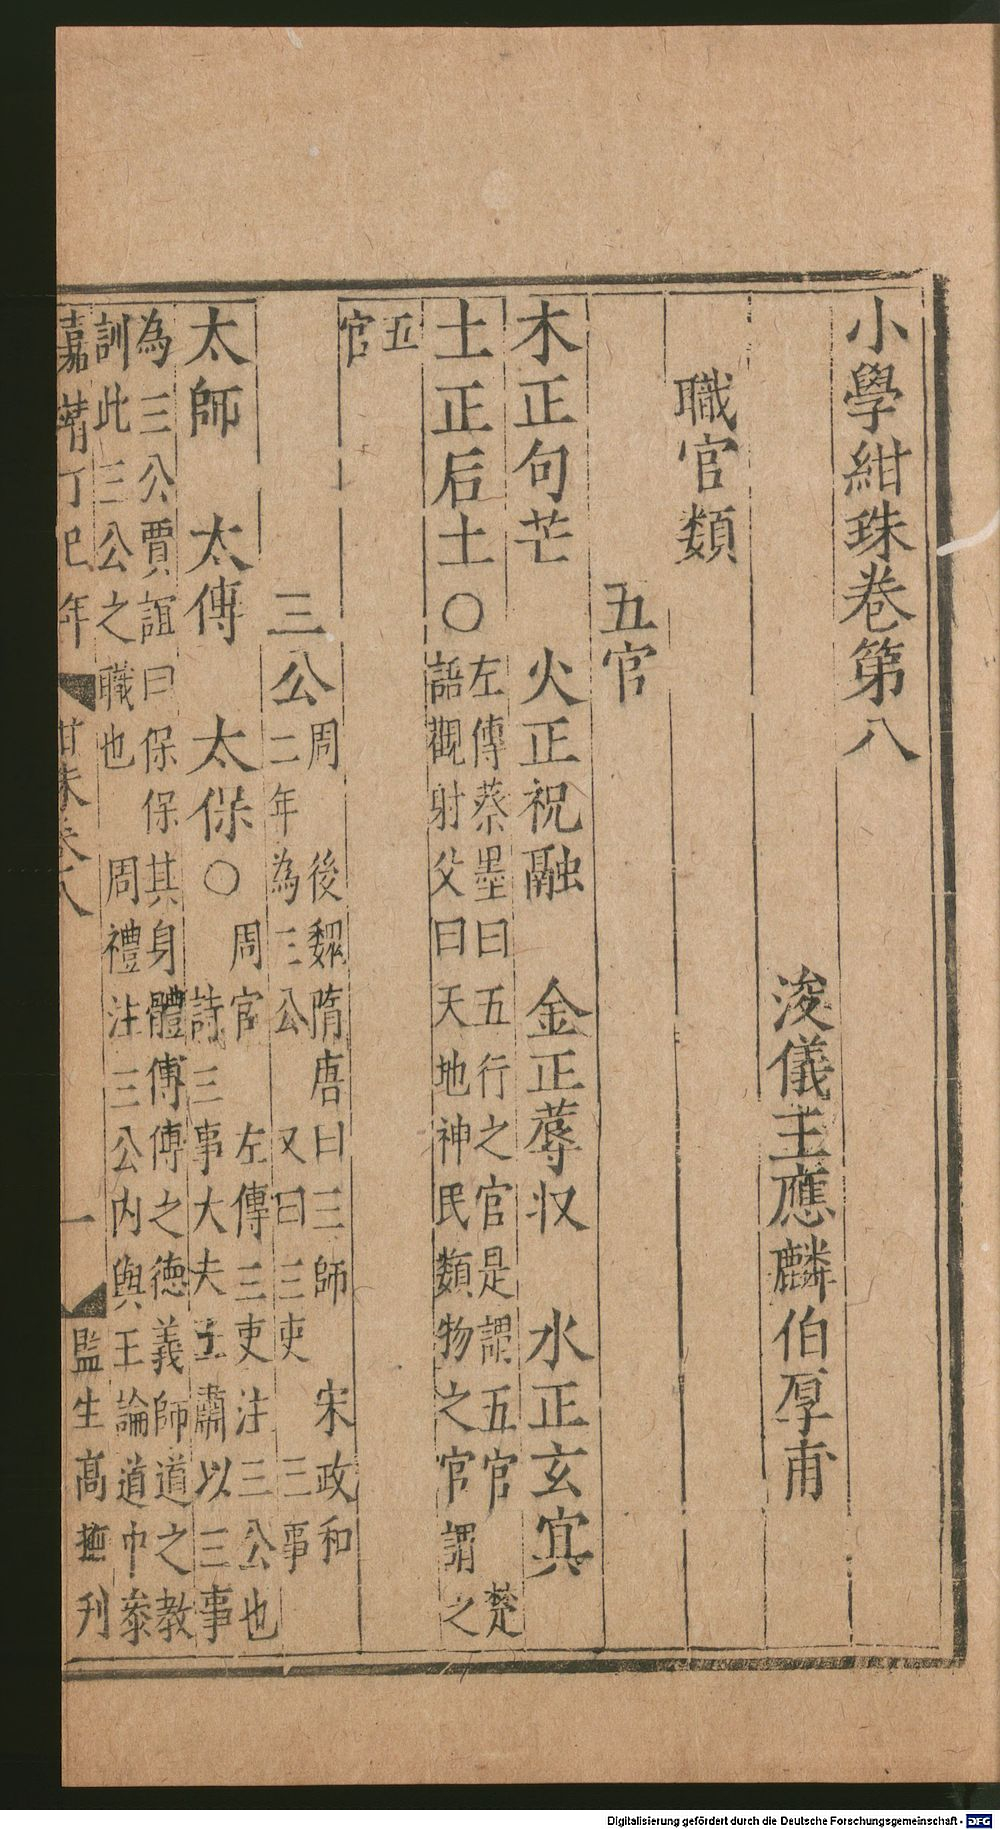 小學紺珠卷第八
浚儀王應麟伯厚甫
職官類
五官
木正句芒 火正祝融 金正蓐收 水正玄冥
土正后土○左傳蔡墨曰五行之官是謂五官 楚
語觀射父曰天地神民類物之官謂之
五
官
三公周 後魏隋唐曰三師 宋政和
二年為三公 又曰三吏 三事
太師 太傅 太保○周官 左傳三吏注三公也
詩三事大夫王肅以三事
為三公賈誼曰保保其身體傅傅之德義師道之教
訓此三公之職也 周禮注三公內與王論道中參
嘉靖丁巳年 紺珠卷八 一 監生高 刊
Digitalisierung gefördert durch die Deutsche Forschungsgemeinschaft - DFG